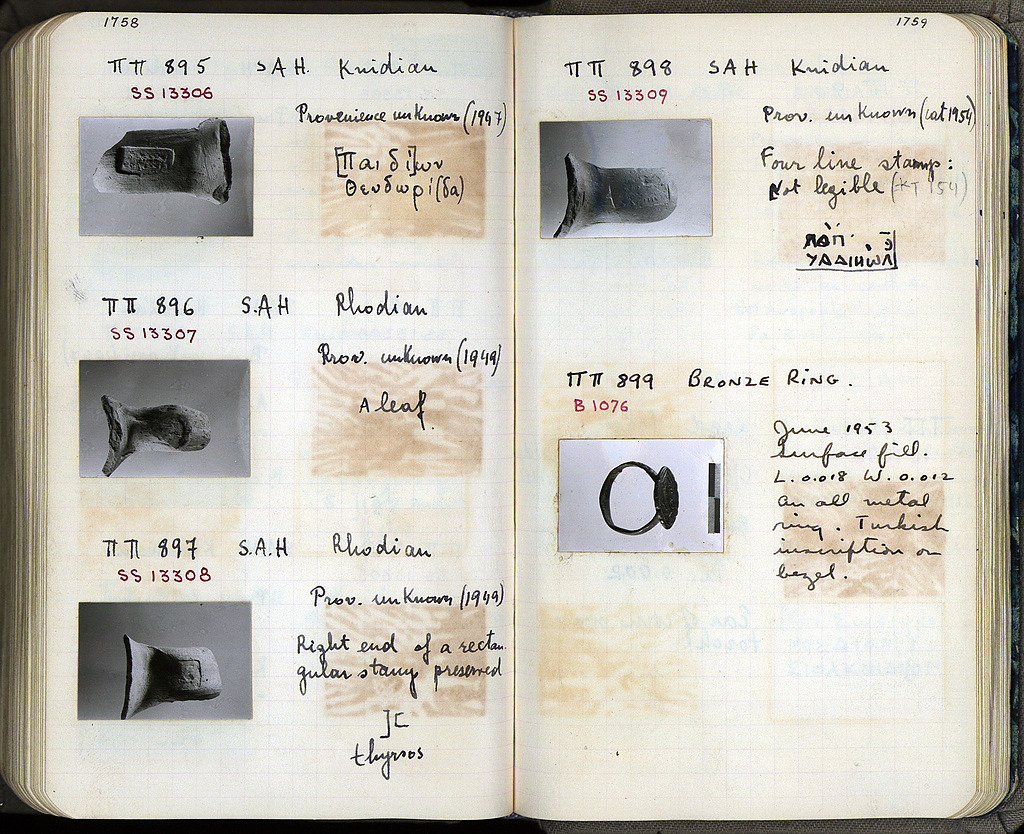 1758
ΠΠ 895 SAH. Knidian
SS 13306
Provenience unknown (1947)
[Παιδί]ων
Θευδωρί(δα)
ΠΠ 896 S.A.H Rhodian
SS 13307
Prov. unknown (1949)
A leaf
ΠΠ 897 S.A.H Rhodian
SS 13308
Prov. unknown (1949)
Right end of a rectan
gular stamp preserved
] [
thyrsos
1759
ΠΠ 898 SAH Knidian
SS 13309
Prov. unknown (cat 1954)
Four line stamp:
Not legible (KT 154)
ΠΠ 899 BRONZE RING.
B 1076
June 1953
Surface fill.
L. 0.018 W. 0.012
an all metal
ring. Turkish
inscription on
bezel.